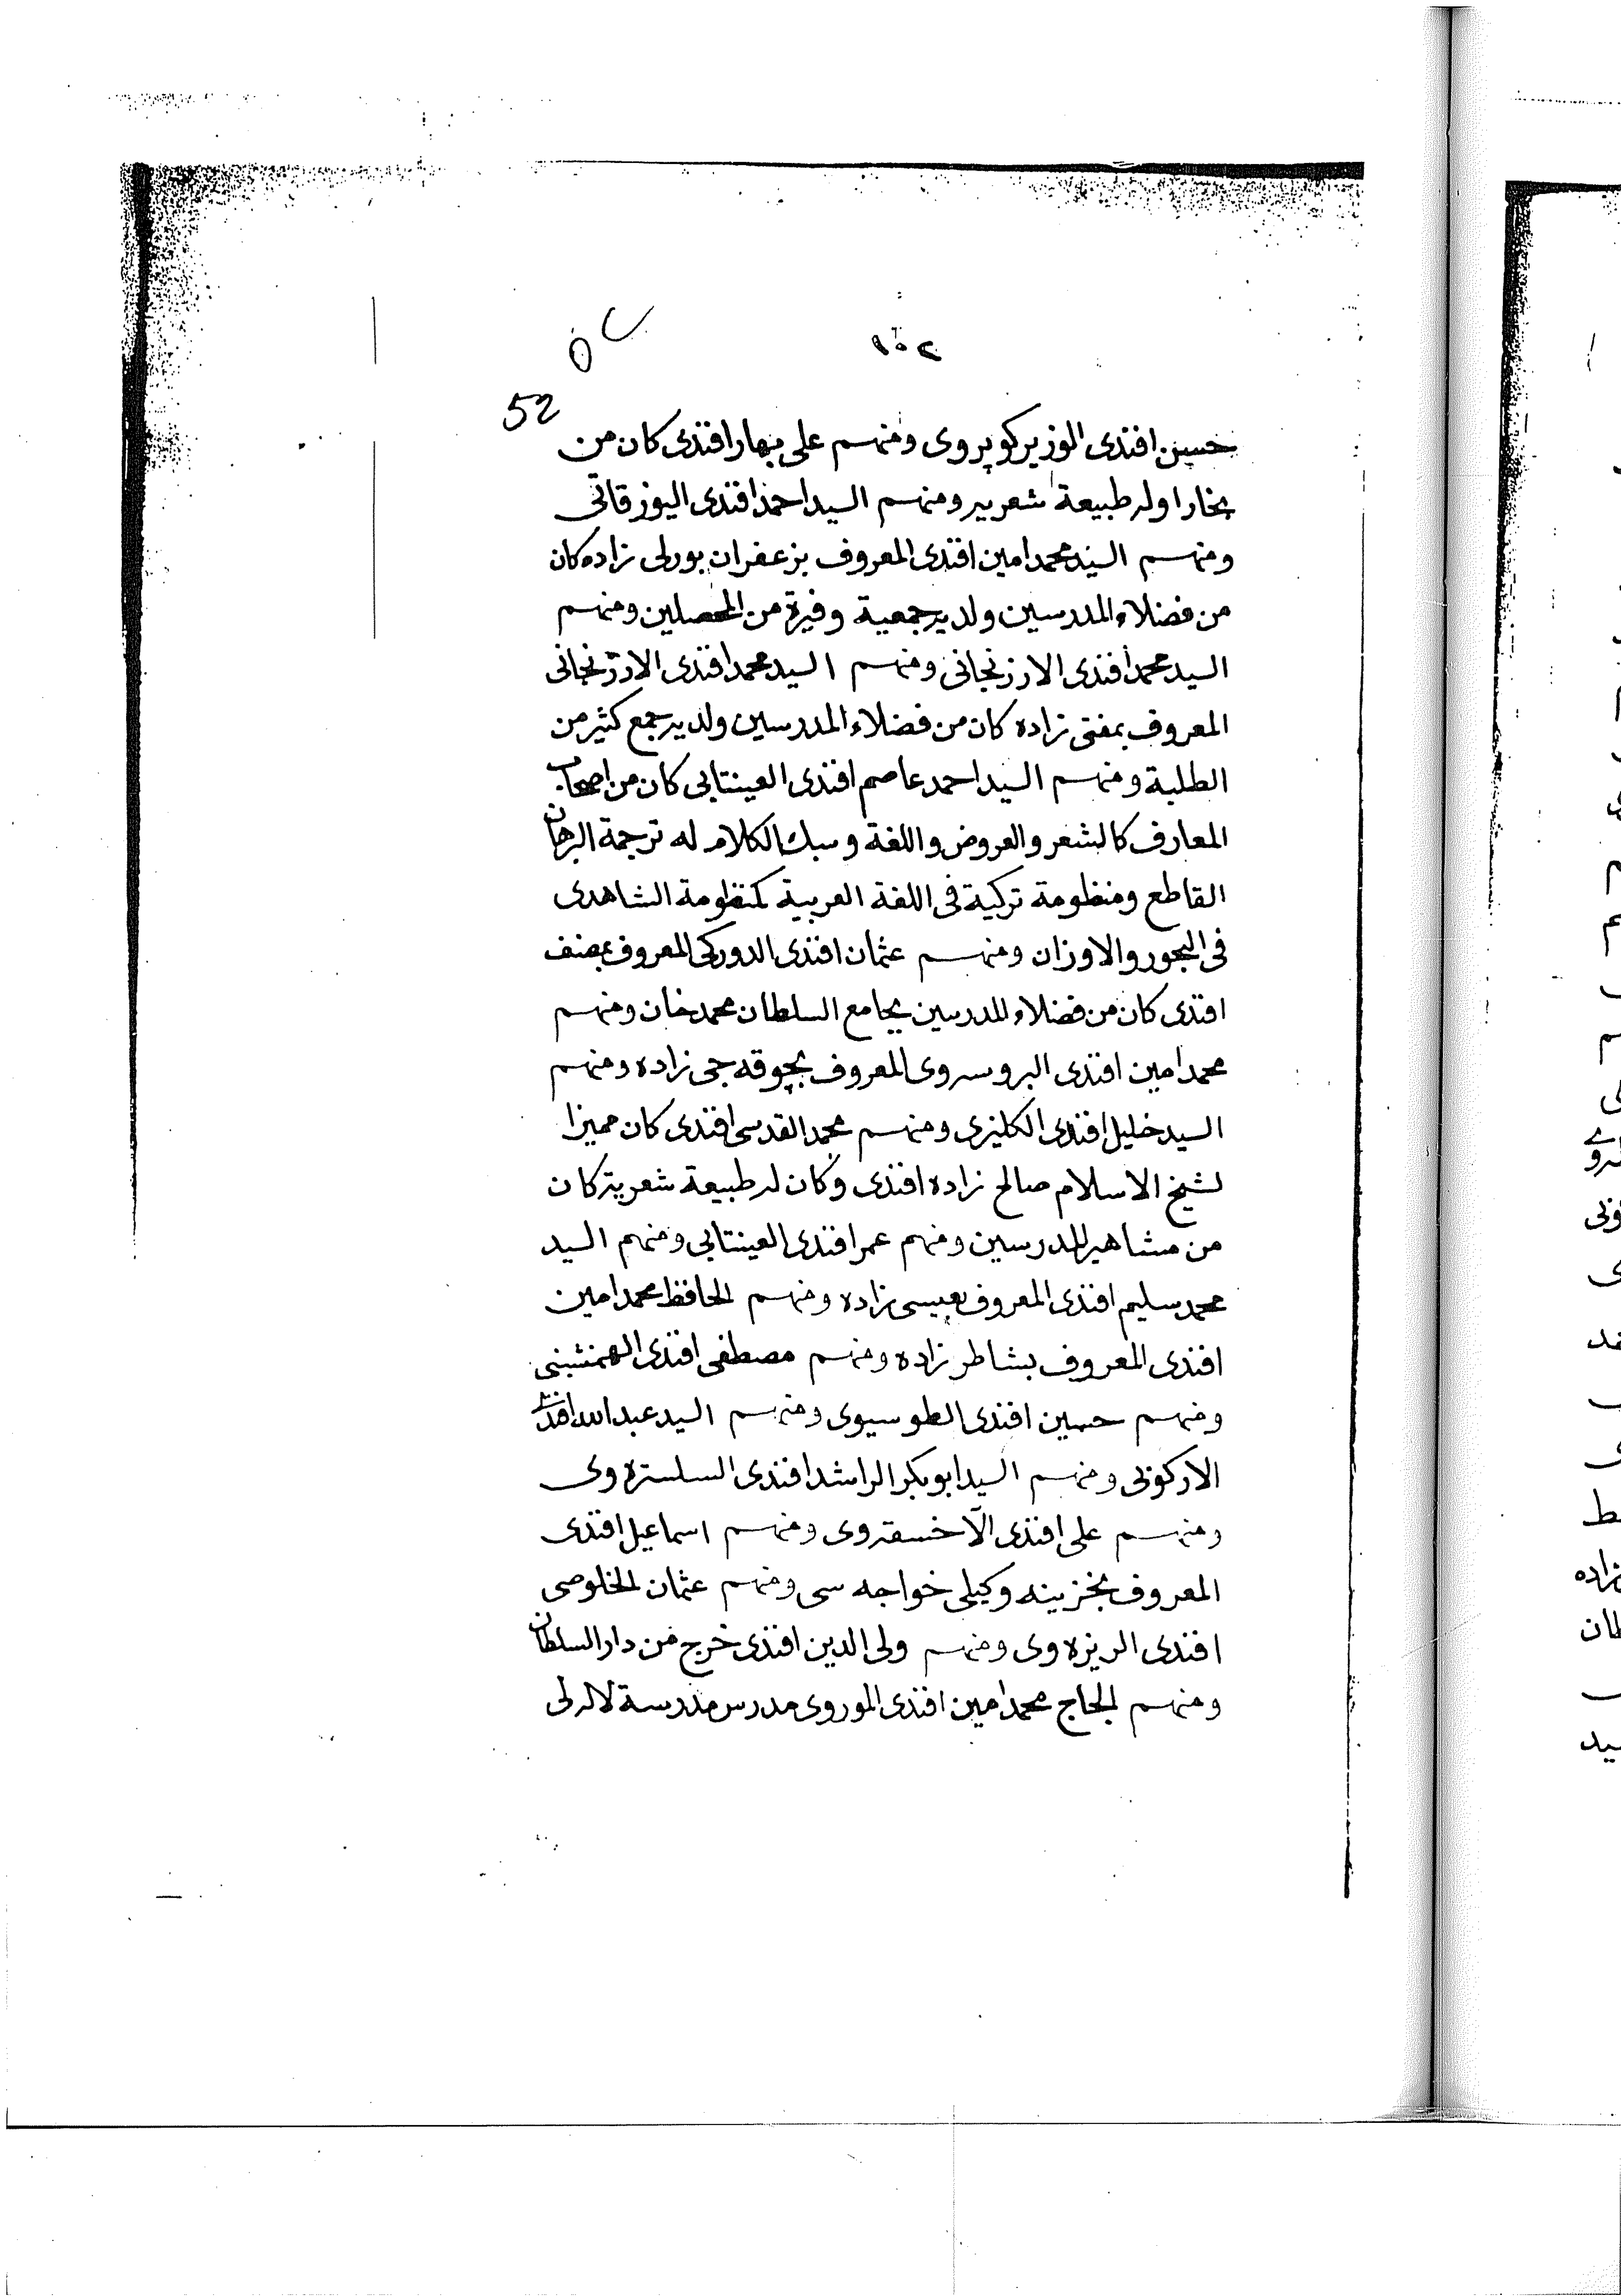 ١٥٢
٥٢
52
حسين افندى الوزير كوپروى ومنهم على بهار افندى كان من
بخارا وله طبيعة شعريه ومنهم السيد احمد افندى اليوزقاتى
ومنهم السيد محمد امين افندى المعروف بزعفران بورلى زاده كان
من فضلاء المدرسين ولديه جمعية وفيرة من المحصلين ومنهم
السيد محمد افندى الارزنجانى ومنهم السيد محمد افندى الارزنجانى
المعروف بمفتى زاده كان من فضلاء المدرسين ولديه جمع كثير من
الطلبة ومنهم السيد احمد عاصم افندى العينتابى كان من اصحاب
المعارف كالشعر والعروض واللغة وسبك الكلام له ترجمة البرهان
القاطع ومنظومة تركية فى اللغة العربية كمنظومة الشاهدى
فى البحور والاوزان ومنهم عثمان افندى الدوركى المعروف بمصنف
افندى كان من فضلاء المدرسين بجامع السلطان محمد خان ومنهم
محمد امين افندى البروسروى المعروف بچوقه جى زاده ومنهم
السيد خليل افندى الكليزى ومنهم محمد القدسى افندى كان مميزا
لشيخ الاسلام صالح زاده افندى وكان له طبيعة شعرية كان
من مشاهير المدرسين ومنهم عمر افندى العينتابى ومنهم السيد
محمد سليم افندى المعروف بعيسى زاده ومنهم الحافظ محمد امين
افندى المعروف بشاطر زاده ومنهم مصطفى افندى
ومنهم حسين افندى الطوسيوى ومنهم السيد عبد الله افندى
الاركونى ومنهم السيد ابو بكر الراشد افندى السلستره وى
ومنهم على افندى الآخسقه وى ومنهم اسماعيل افندى
المعروف بخزينه وكيلى خواجه سى ومنهم عثمان الخلوصى
افندى الريزه وى ومنهم ولى الدين افندى خرج من دار السلطان
ومنهم الحاج محمد امين افندى الموروى مدرس مدرسة لاله لى